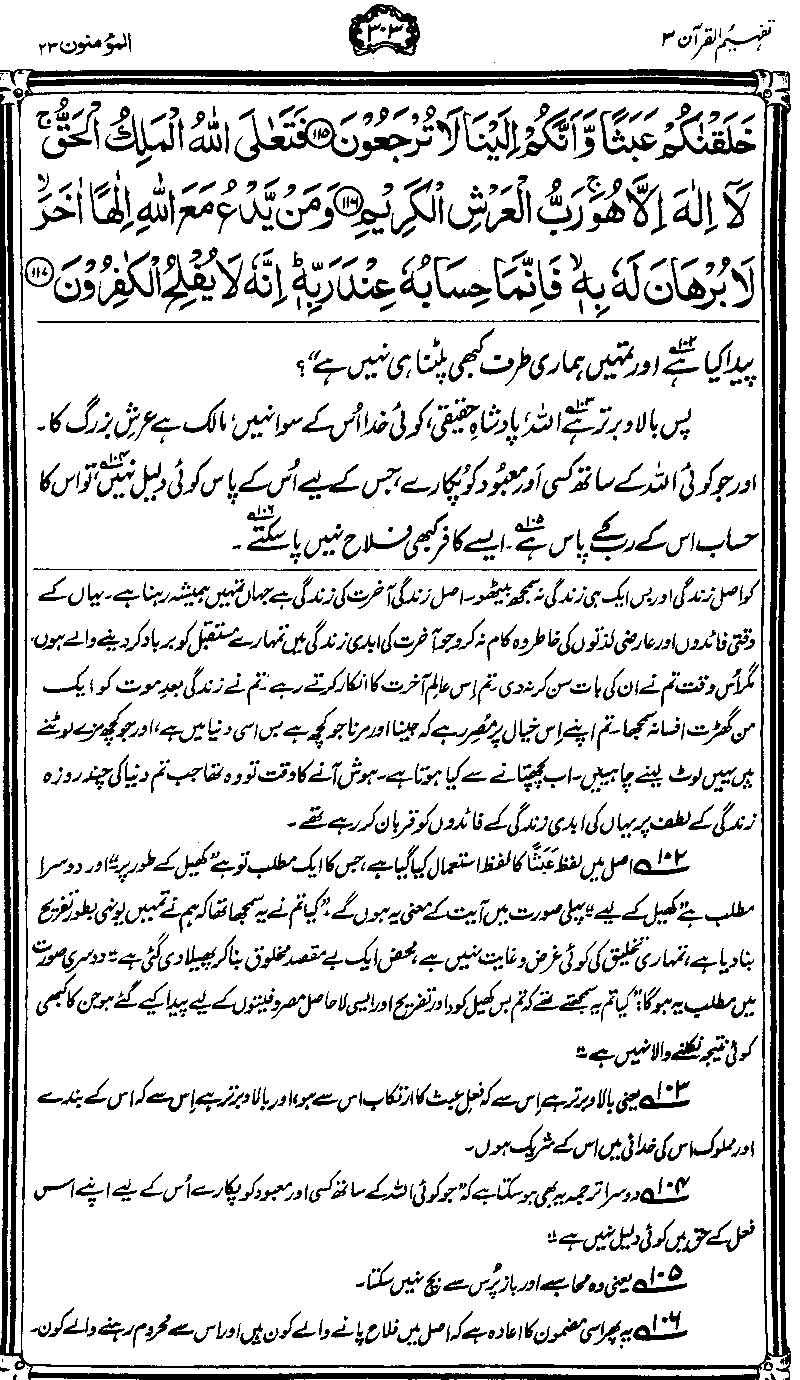 تفہیم القرآن ۳
۳۰۳
المؤمنون ۲۳
خَلَقْنٰكُمْ عَبَثًا وَّاَنَّكُمْ اِلَيْنَا لَا تُرْجَعُوْنَ ﴿۱۱۵﴾ فَتَعٰلَى اللّٰهُ الْمَلِكُ الْحَقُّ ۚ
لَآ اِلٰهَ اِلَّا هُوَ ۚ رَبُّ الْعَرْشِ الْكَرِيْمِ ﴿۱۱۶﴾ وَمَنْ يَّدْعُ مَعَ اللّٰهِ اِلٰهًا اٰخَرَ ۙ
لَا بُرْهَانَ لَهٗ بِهٖ ۙ فَاِنَّمَا حِسَابُهٗ عِنْدَ رَبِّهٖ ؕ اِنَّهٗ لَا يُفْلِحُ الْكٰفِرُوْنَ ﴿۱۱۷﴾
پیدا کیا ہے۱۰۲ اور تمہیں ہماری طرف کبھی پلٹنا ہی نہیں ہے“؟
پس بالا و برتر ہے۱۰۳ اللہ، پادشاہِ حقیقی، کوئی خدا اُس کے سوا نہیں، مالک ہے عرشِ بزرگ کا۔
اور جو کوئی اللہ کے ساتھ کسی اَور معبود کو پکارے، جس کے لیے اُس کے پاس کوئی دلیل نہیں۱۰۴، تو اس کا
حساب اس کے رب کے پاس ہے۱۰۵۔ ایسے کافر کبھی فلاح نہیں پا سکتے۱۰۶۔
کو اصل زندگی اور بس ایک ہی زندگی نہ سمجھ بیٹھو۔ اصل زندگی آخرت کی زندگی ہے جہاں تمہیں ہمیشہ رہنا ہے۔ یہاں کے
وقتی فائدوں اور عارضی لذتوں کی خاطر وہ کام نہ کرو جو آخرت کی ابدی زندگی میں تمہارے مستقبل کو برباد کر دینے والے ہوں۔
مگر اُس وقت تم نے ان کی بات سن کر نہ دی۔ تم اِس عالمِ آخرت کا انکار کرتے رہے۔ تم نے زندگی بعدِ موت کو ایک
من گھڑت افسانہ سمجھا۔ تم اپنے اِس خیال پر مُصِر رہے کہ جینا اور مرنا جو کچھ ہے بس اسی دنیا میں ہے، اور جو کچھ مزے لوٹنے
ہیں یہیں لوٹ لینے چاہییں۔ اب پچھتانے سے کیا ہوتا ہے۔ ہوش آنے کا وقت تو وہ تھا جب تم دنیا کی چند روزہ
زندگی کے لطف پر یہاں کی ابدی زندگی کے فائدوں کو قربان کر رہے تھے۔
۱۰۲ اصل میں لفظ عَبَثًا کا لفظ استعمال کیا گیا ہے، جس کا ایک مطلب تو ہے ”کھیل کے طور پر“ اور دوسرا
مطلب ہے ”کھیل کے لیے“۔ پہلی صورت میں آیت کے معنی یہ ہوں گے۔ ”کیا تم نے یہ سمجھا تھا کہ ہم نے تمہیں یونہی بطور تفریح
بنا دیا ہے، تمہاری تخلیق کی کوئی غرض و غایت نہیں ہے، محض ایک بے مقصد مخلوق بنا کر پھیلا دی گئی ہے“۔ دوسری صورت
میں مطلب یہ ہوگا، ”کیا تم یہ سمجھتے تھے کہ تم بس کھیل کود اور تفریح اور ایسی لا حاصل مصروفیتوں کے لیے پیدا کیے گئے ہو جن کا کبھی
کوئی نتیجہ نکلنے والا نہیں ہے“۔
۱۰۳ یعنی بالا و برتر ہے اِس سے کہ فعلِ عبث کا ارتکاب اس سے ہو، اور بالا و برتر ہے اِس سے کہ اس کے بندے
اور مملوک اس کی خدائی میں اس کے شریک ہوں۔
۱۰۴ دوسرا ترجمہ یہ بھی ہو سکتا ہے کہ ”جو کوئی اللہ کے ساتھ کسی اور معبود کو پکارے اُس کے لیے اپنے اس
فعل کے حق میں کوئی دلیل نہیں ہے“۔
۱۰۵ یعنی وہ محاسبے اور باز پُرس سے بچ نہیں سکتا۔
۱۰۶ یہ پھر اسی مضمون کا اعادہ ہے کہ اصل میں فلاح پانے والے کون ہیں اور اس سے محروم رہنے والے کون۔